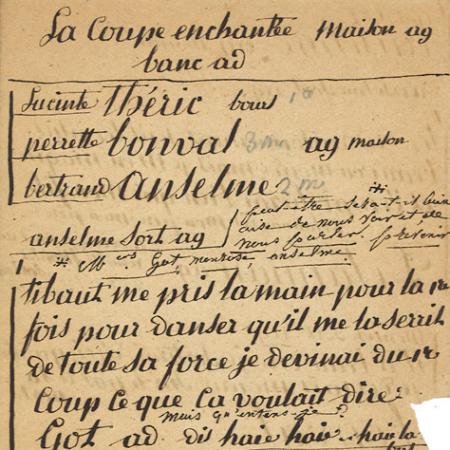 La Coupe enchantée Maison ag
banc ad
Lucinte Théric bous
perrette bonval 3 m ag maison
bertrand anselme 2 m
peut-être sera-t-il bien
aise de nous voir et de
anselme sort ag nous parler. prevenir
Got anselme
tibaut me pris la main pour la
fois pour danser qu'il me la serrit
de toute sa force je devinai du
coup ce que ça voulait dire
mais qu'entens-je?
Got ad dis haie haie haie la